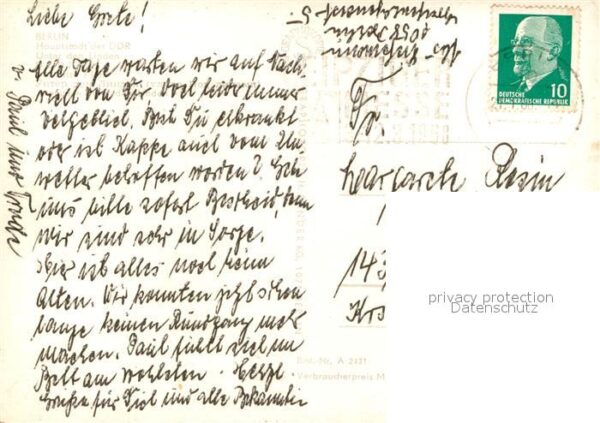 Liebe Grete!
BERLIN
Hauptstadt der DDR
Alle Tage warten wir auf Nach-
richt von Dir doch leider immer
vergeblich. Bist Du erkrankt
oder ist Kappe auch vom Un-
wetter betroffen worden? Gib
uns bitte sofort Bescheid, denn
wir sind sehr in Sorge.
Hier ist alles noch beim
Alten. Wir konnten jetzt schon
lange keinen Rundgang mehr
machen. Paul fühlt sich im
Bett am wohlsten. Herzl.
Grüße für Dich und alle Bekannten
v. Paul und
Fr.
Margarete Rosin
143
Best.-Nr. A 2421
Verbraucherpreis M
DEUTSCHE
DEMOKRATISCHE REPUBLIK
10
privacy protection
Datenschutz